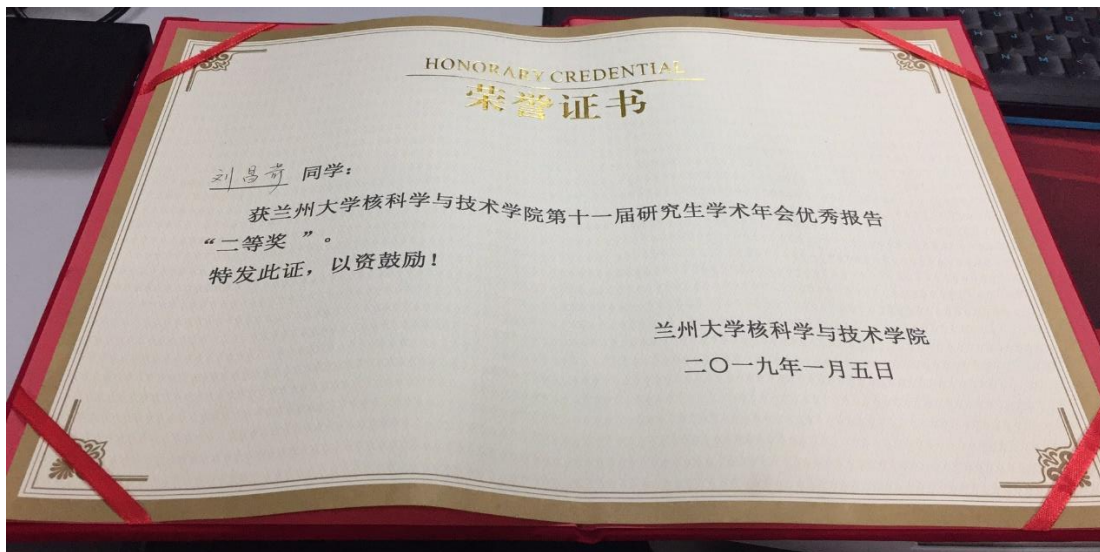 HONORARY CREDENTIAL
荣誉证书
刘昌奇 同学：
获兰州大学核科学与技术学院第十一届研究生学术年会优秀报告
“二等奖 ”。
特发此证，以资鼓励！
兰州大学核科学与技术学院
二〇一九年一月五日